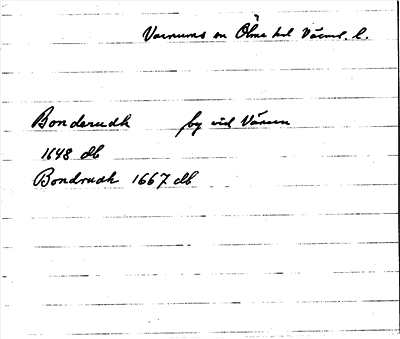 Varnums sn Ölme hd Värml. l.
Bonderudh by vid Vänern
1648 db
Bondrudh 1667 db